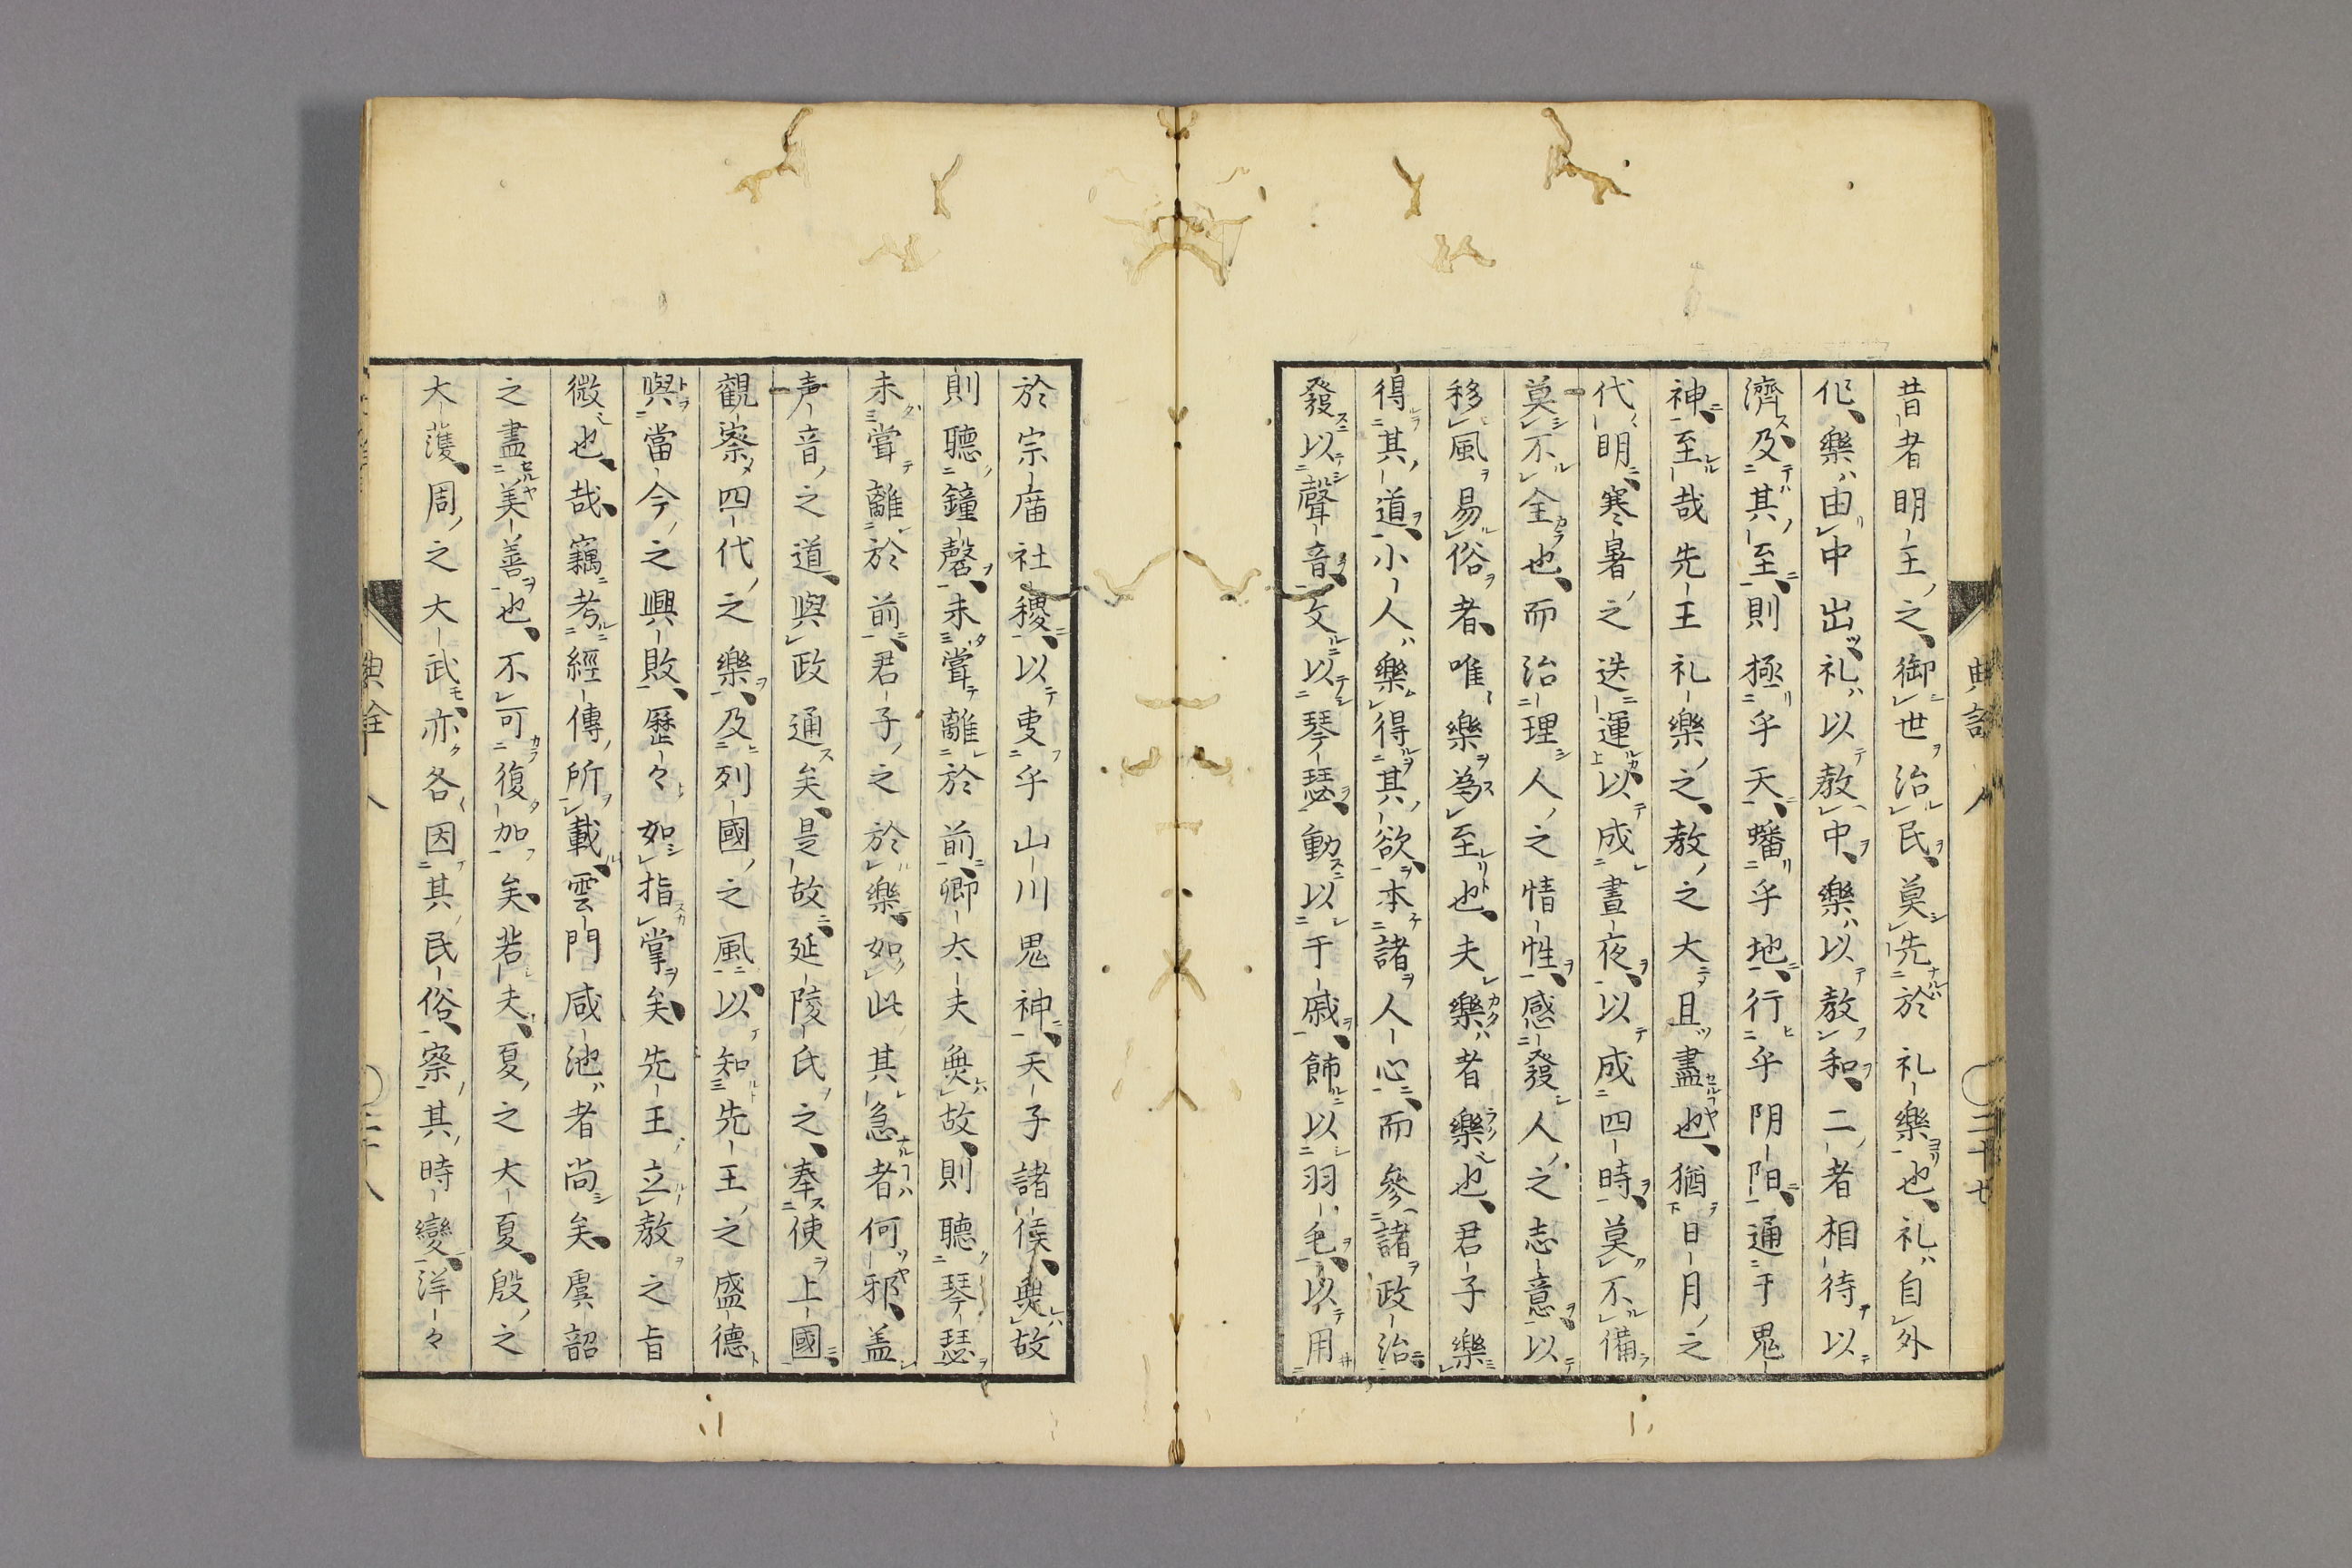 昔者明王之御世治民莫先於礼樂也礼自外
化樂由中出礼以敎中樂以敎和二者相待以
濟及其至則極乎天蟠乎地行乎阴阳通于鬼
神至哉先王礼樂之敎之大且盡也猶日月之
代明寒暑之迭運以成晝夜以成四時莫不備
莫不全也而治理人之情性感發人之志意以
移風易俗者唯樂為至也夫樂者樂也君子樂
得其道小人樂得其欲本諸人心而參諸政治
發以聲音文以琴瑟動以干戚飾以羽毛以用
於宗庿社稷以叓乎山川鬼神天子諸侯無故
則聴鐘磬未嘗離於前卿太夫無故則聴琴瑟
未嘗離於前君子之於樂如此其急者何邪盖
声音之道與政通矣是故延陵氏之奉使上國
觀察四代之樂及列國之風以知先王之盛德
與當今之興敗歷々如指掌矣先王立敎之旨
微也哉竊考經傳所載雲門咸池者尚矣虞韶
之盡美善也不可復加矣若夫夏之大夏殷之
大濩周之大武亦各因其民俗察其時變洋々